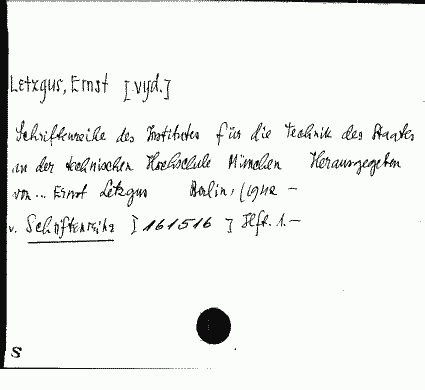 Letzgus, Ernst [vyd.]
Schriftenreihe des Institutes für die Technik des Staates
an der technischen Hochschule München Herausgegeben
von... Ernst Letzgus Berlin, (1942 -
v. Schriftenreihe [161516] Hft. 1. -
S